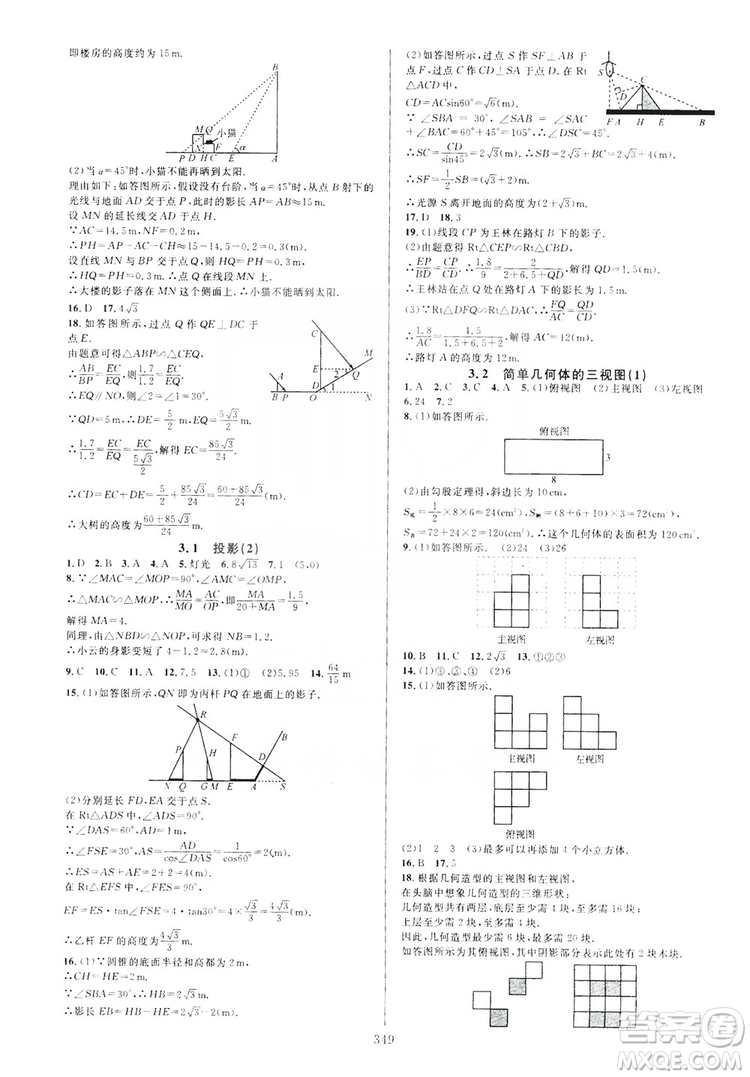 即楼房的高度约为 15 m.
B
M
Q
小猫
N
α
P D H C F E A
(2)当 α=45°时,小猫不能再晒到太阳.
理由如下:如答图所示,假设没有台阶,当 α=45°时,从点 B 射下的
光线与地面 AD 交于点 P,此时的影长 AP=AB≈15 m.
设 MN 的延长线交 AD 于点 H.
∵AC=14.5 m,NF=0.2 m,
∴PH=AP-AC-CH≈15-14.5-0.2=0.3(m).
设直线 MN 与 BP 交于点 Q,则 HQ=PH=0.3 m.
∴HQ=PH=0.3 m.
∴大楼的影子落在 MN 这个侧面上.∴小猫不能晒到太阳.
16.D 17.4√3
18.如答图所示,过点 Q 作 QE⊥DC 于
点 E.
由题意可得△ABP∽△CEQ,
∴AB/BP=EC/EQ,则1.7/1.2=EC/EQ.
∴EQ∥NO,∴∠1=∠2=30°.
∵QD=5 m,∴DE=5/2 m,EQ=5√3/2 m.
∴1.7/1.2=EC/EQ=EC/(5√3/2),解得 EC=85√3/24 m.
∴CD=EC+DE=5/2+85√3/24=(60+85√3)/24(m).
∴大树的高度为(60+85√3)/24 m.
C
M
Q
E
2
1
A
B P O D N
3.1 投影(2)
1.D 2.C 3.A 4.变小 5.灯光 6.8√13 7.1 (5,0)
8.∵∠MAC=∠MOP=90°,∠AMC=∠OMP,
∴△MAC∽△MOP.∴MA/MO=AC/OP,即MA/(20+MA)=1.5/9.
解得 MA=4.
同理,由△NBD∽△NOP,可求得 NB=1.2 m.
∴小云的身影变短了 4-1.2=2.8(m).
9.C 10.C 11.A 12.7.5 13.(1)① (2)5.95 14.64/15 m
15.(1)如答图所示,QN 即为丙杆 PQ 在地面上的影子.
R
B
P
H
F
D
N Q G M E A S
(2)分别延长 FD,EA 交于点 S.
在 Rt△ADS 中,∠ADS=90°,
∵∠DAS=60°,∴∠S=30°.
∴∠FSE=30°,∴AS=AD/cos∠DAS=1/cos60°=2(m),
∴ES=AS+AE=2+2=4(m).
在 Rt△EFS 中,∠FES=90°,
EF=ES·tan∠FSE=4·tan30°=4×√3/3=4√3/3(m),
∴乙杆 EF 的高度为4√3/3 m.
16.(1)∵圆锥的底面半径和高都为 2 m,
∴CH=HE=2 m.
∵∠SBA=30°,∴HB=2√3 m.
∴影长 BE=BH-HE=2√3-2(m).
(2)如答图所示,过点 S 作 SF⊥AB 于
点 F,过点 C 作 CD⊥SA 于点 D,在 Rt
△ACD 中,
CD=ACsin60°=√6(m).
∵∠SBA=30°,∠SAB=∠SAC+∠BAC=60°+45°=105°,∴∠DSC=45°,
∴SC=CD/sin45°=2√3(m).
∴SF=1/2SB=√2+√3(m).
∴光源 S 离开地面的高度为(√2+√3)m.
S
C
D
F A H E B
17.D 18.3
19.(1)线段 CP 为王林在路灯 B 下的影子.
(2)由题意得 Rt△CEP∽Rt△CBD,
∴EP/BD=CP/CD.∴1.8/9=2/(2+6.5+QD).解得 QD=1.5(m);
∴王林站在点 Q 处在路灯 A 下的影长为 1.5 m.
(3)∵Rt△DFQ∽Rt△DAC,∴FQ/AC=QD/CD.
∴1.8/AC=1.5/(1.5+6.5+2).解得 AC=12(m).
∴路灯 A 的高度为 12 m.
3.2 简单几何体的三视图(1)
1.A 2.C 3.C 4.C 5.(1)俯视图 (2)主视图 (3)左视图
6.24 7.2
8.(1)如答图所示.
俯视图
3
8
(2)由勾股定理得,斜边长为 10 cm,
S底=1/2×8×6=24(cm²),S侧=(8+6+10)×3=72(cm²),
S表=72+24×2=120(cm²).∴这个几何体的表面积是 120 cm².
9.(1)如答图所示. (2)24 (3)26
主视图 左视图
10.B 11.C 12.2√3 13.①②③
14.(1)③,④,① (2)6
15.(1)如答图所示.
主视图
左视图
俯视图
(2)1 2 3 (3)最多可以再添加 4 个小立方体.
16.B 17.5
18.根据几何造型的主视图和左视图.
在头脑中想象几何造型的三维形状:
几何造型共有两层,底层至少需 4 块,最多需 16 块;
上层至少需 2 块,最多需 4 块.
因此,几何造型至少需 6 块,最多需 20 块.
如答图所示为其俯视图,其中阴影部分表示此处有 2 块木块.
349
答案圈
MXQE.COM